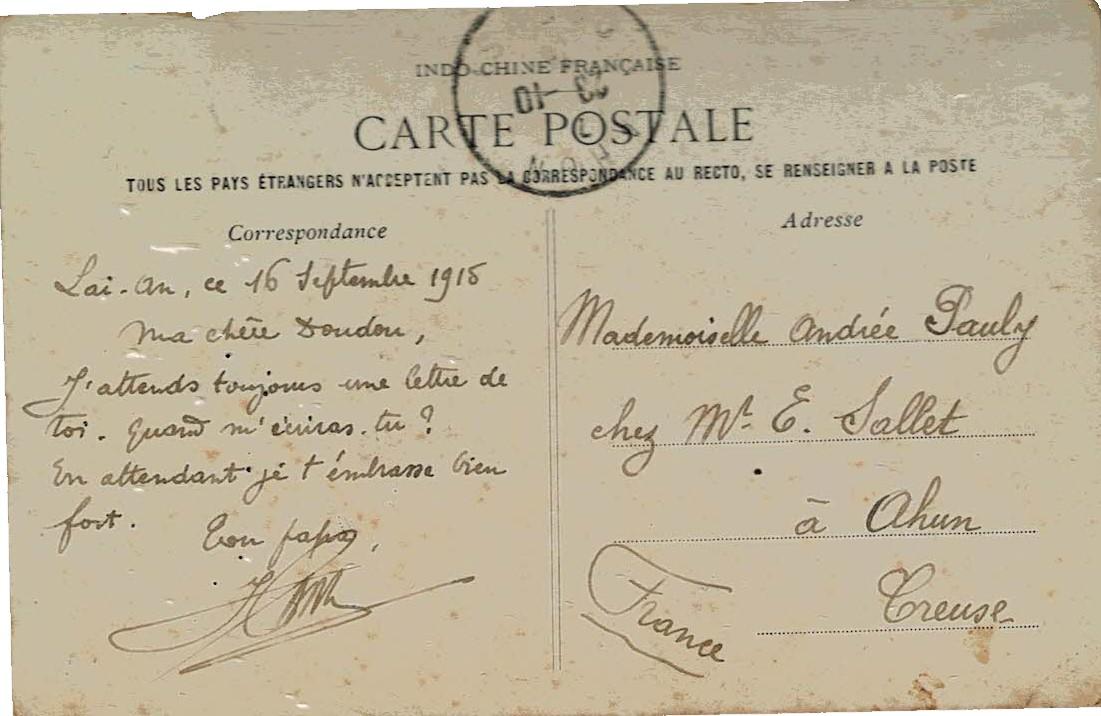 INDO-CHINE FRANÇAISE
23 -10
CARTE POSTALE
TOUS LES PAYS ÉTRANGERS N'ACCEPTENT PAS LA CORRESPONDANCE AU RECTO, SE RENSEIGNER A LA POSTE
Correspondance
Lai-An, ce 16 Septembre 1915
Ma chère Doudou,
J'attends toujours une lettre de
toi. Quand m'écriras-tu ?
En attendant je t'embrasse bien
fort.
Ton papa,
Adresse
Mademoiselle Andrée Pauly
chez Mr. E. Sallet
à Ahun
Creuse
France